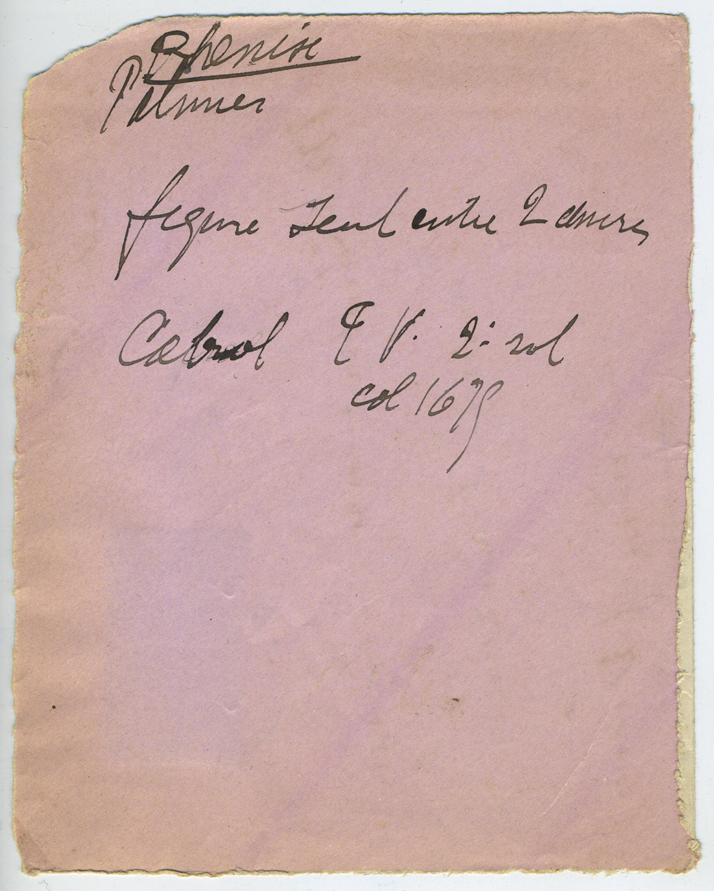 Phenix
Palmier
figure seul entre 2 autres
Cabrol T V. 2e vol
col 1679